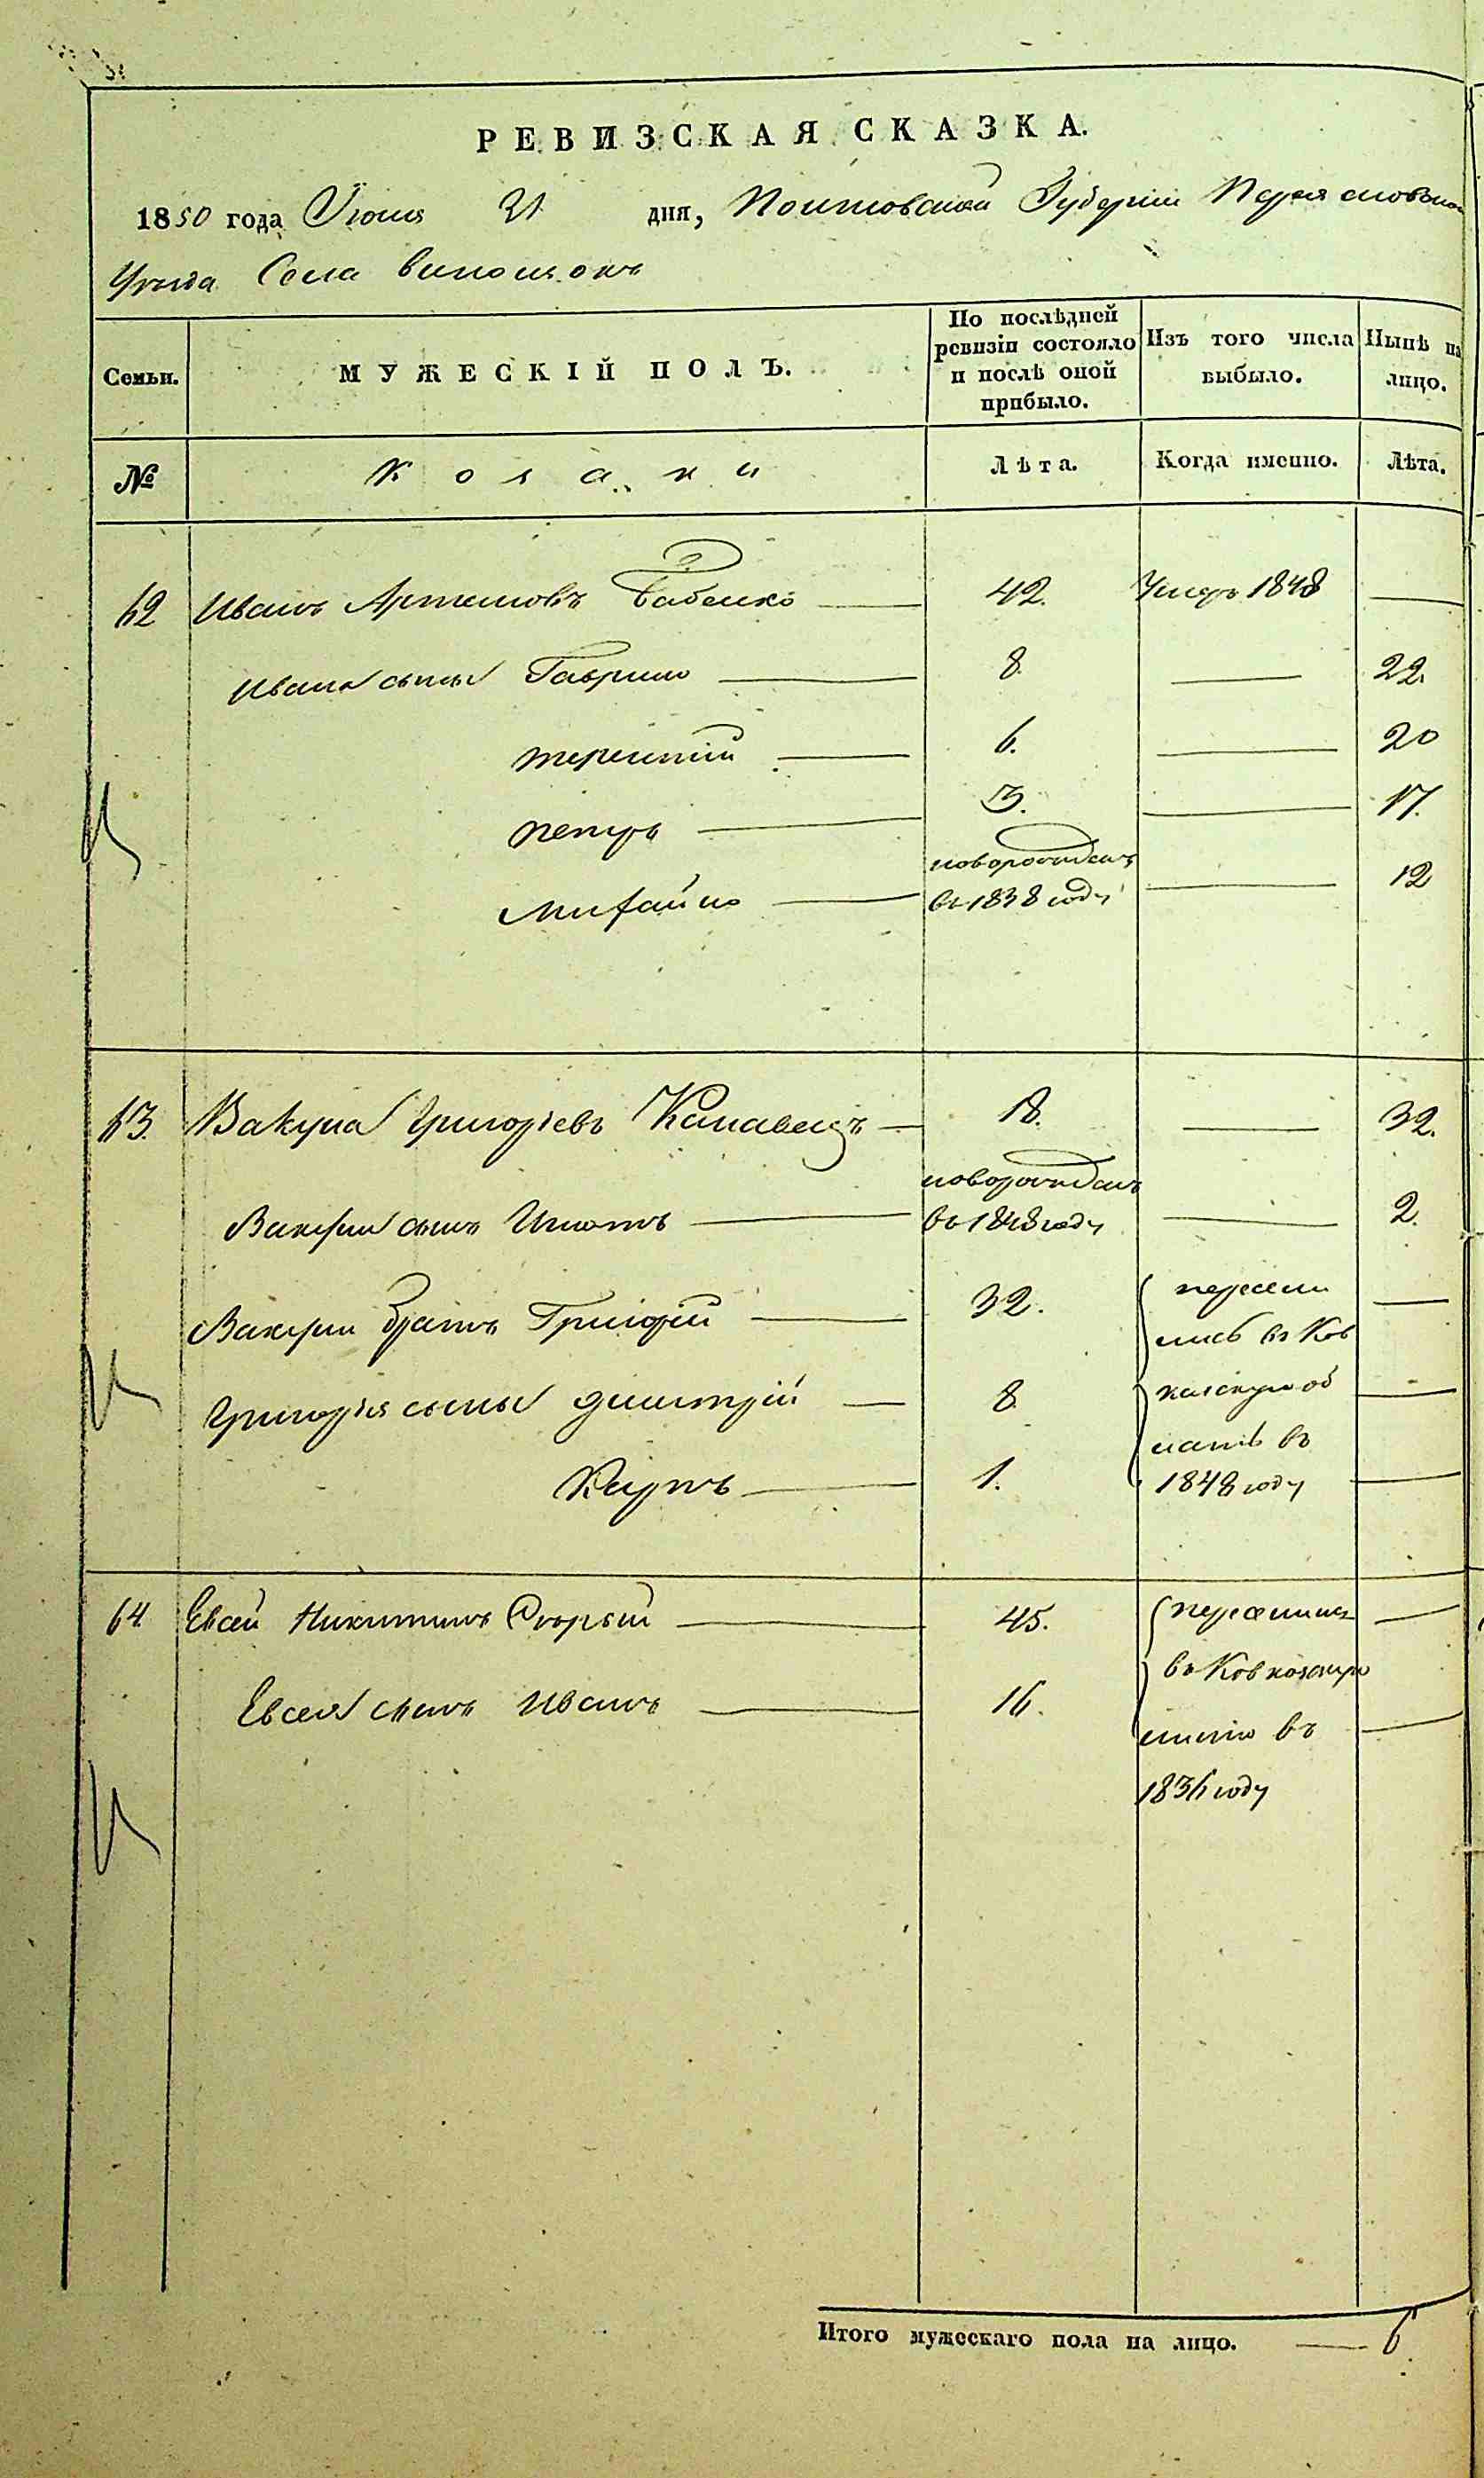 РЕВИЗСКАЯ СКАЗКА.
1850 года Июня 21 дня, Полтовской Губерніи Переясловского
Уезда Села
Семьи.
МУЖЕСКІЙ ПОЛЪ.
По послѣдней ревизіи состояло и послѣ оной прибыло.
Изъ того числа выбыло.
Нынѣ на лицо.
№
Козаки
Лѣта.
Когда именно.
Лѣта.
62 Иванъ Артемовъ Бабенко 42. Умеръ 1848
Ивана сыны Гаврило 8. 22.
терентій 6. 20
петръ 3. 17.
новорожденъ
Михайло въ 1838 году 12
63. Вакула Григорьевъ Канавецъ 18. 32.
новорожденъ
Вакулы сынъ Игнатъ въ 1848 году 2.
Вакулы братъ Григорій 32. пересели
лись въ Кав
Григорія сыны димитрій 8. казскую об
ласть въ
Карпъ 1. 1848 году
64 Евсей Никитинъ Скорый 45. переселились
Евсея сынъ Иванъ 16. въ Кавказскую
линію въ
1836 году
Итого мужескаго пола на лицо. 6